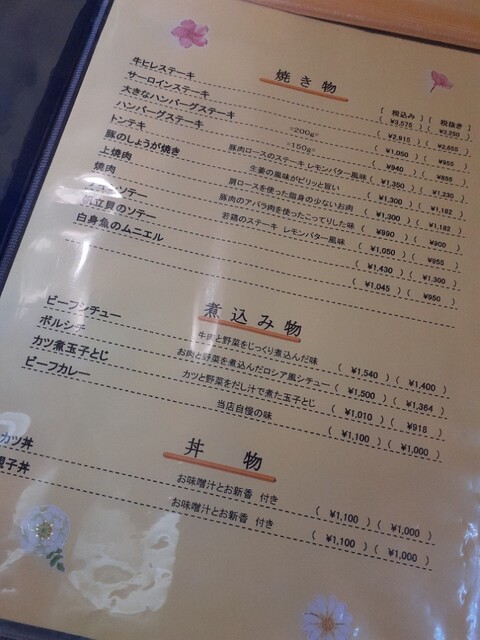 焼き物
( 税込み ) ( 税抜き )
牛ヒレステーキ ( ¥3,575 ) ( ¥3,250 )
サーロインステーキ ( ¥2,915 ) ( ¥2,655 )
大きなハンバーグステーキ =200g= ( ¥1,050 ) ( ¥955 )
ハンバーグステーキ =150g= ( ¥940 ) ( ¥855 )
トンテキ 豚肉ロースのステーキ レモンバター風味 ( ¥1,350 ) ( ¥1,230 )
豚のしょうが焼き 生姜の風味がピリッと旨い ( ¥1,300 ) ( ¥1,182 )
上焼肉 肩ロースを使った脂身の少ないお肉 ( ¥1,300 ) ( ¥1,182 )
焼肉 豚肉のアバラ肉を使ったこってりした味 ( ¥990 ) ( ¥900 )
ソテー 若鶏のステーキ レモンバター風味 ( ¥1,050 ) ( ¥955 )
帆立貝のソテー ( ¥1,430 ) ( ¥1,300 )
白身魚のムニエル ( ¥1,045 ) ( ¥950 )
煮込み物
ビーフシチュー 牛肉と野菜をじっくり煮込んだ味 ( ¥1,540 ) ( ¥1,400 )
ボルシチ お肉と野菜を煮込んだロシア風シチュー ( ¥1,500 ) ( ¥1,364 )
カツ煮玉子とじ カツと野菜をだし汁で煮た玉子とじ ( ¥1,010 ) ( ¥918 )
ビーフカレー 当店自慢の味 ( ¥1,100 ) ( ¥1,000 )
丼 物
カツ丼 お味噌汁とお新香 付き ( ¥1,100 ) ( ¥1,000 )
親子丼 お味噌汁とお新香 付き ( ¥1,100 ) ( ¥1,000 )